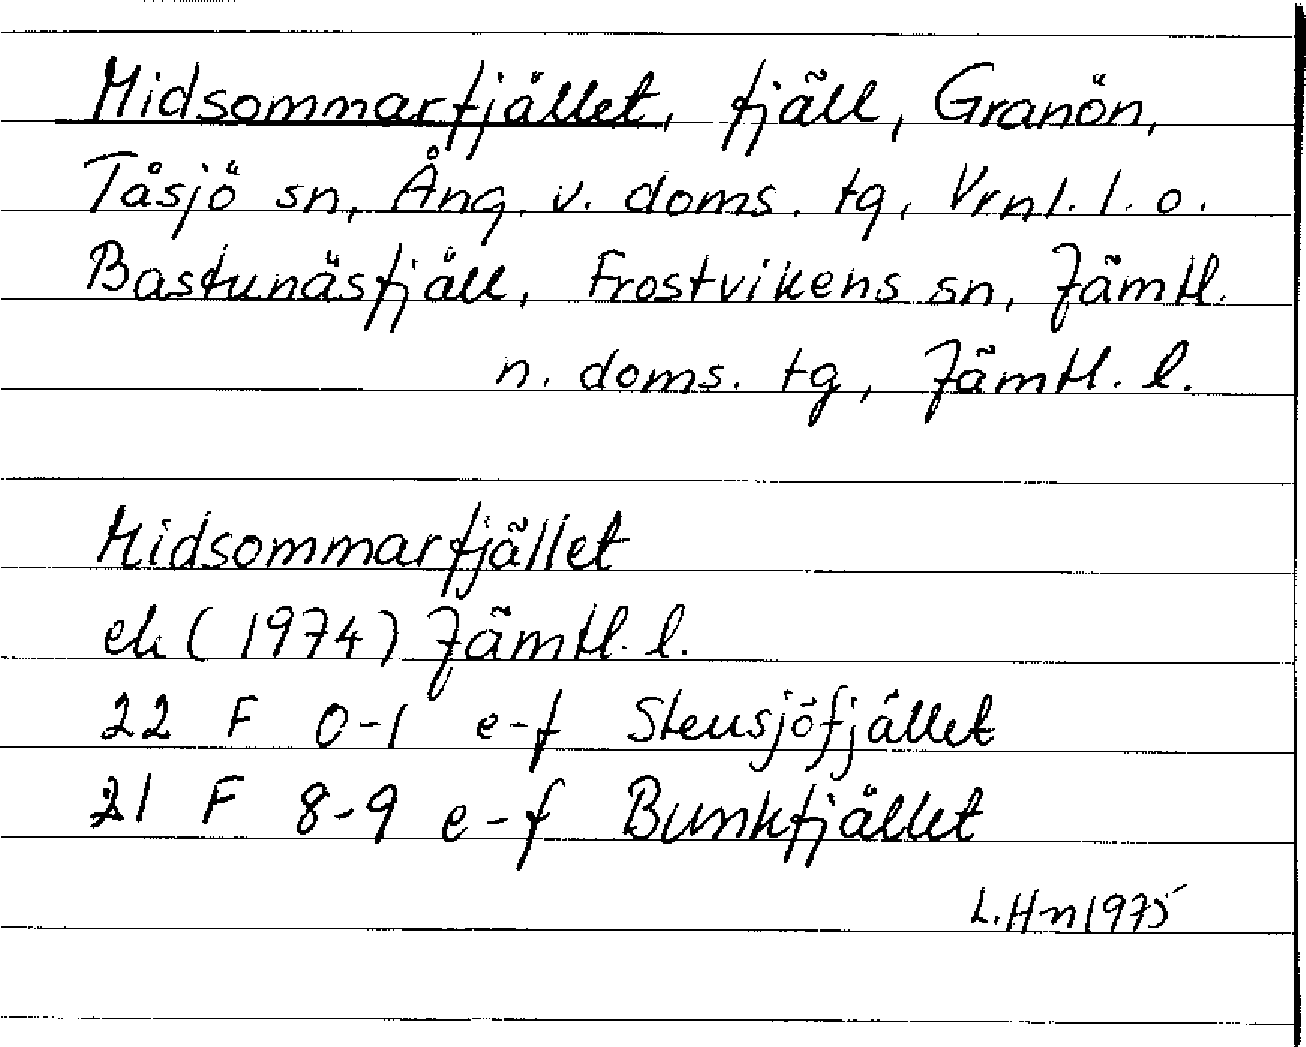 Midsommarfjället, fjäll, Granön,
Tåsjö sn, Ång. v. doms. tg, Vrnl. l. o.
Bastunäsfjäll, Frostvikens sn, Jämtl.
n. doms. tg, Jämtl. l.
Midsommarfjället
ek (1974) Jämtl. l.
22 F 0-1 e-f Steusjöfjället
21 F 8-9 e-f Bunkfjället
L. Hn 1975